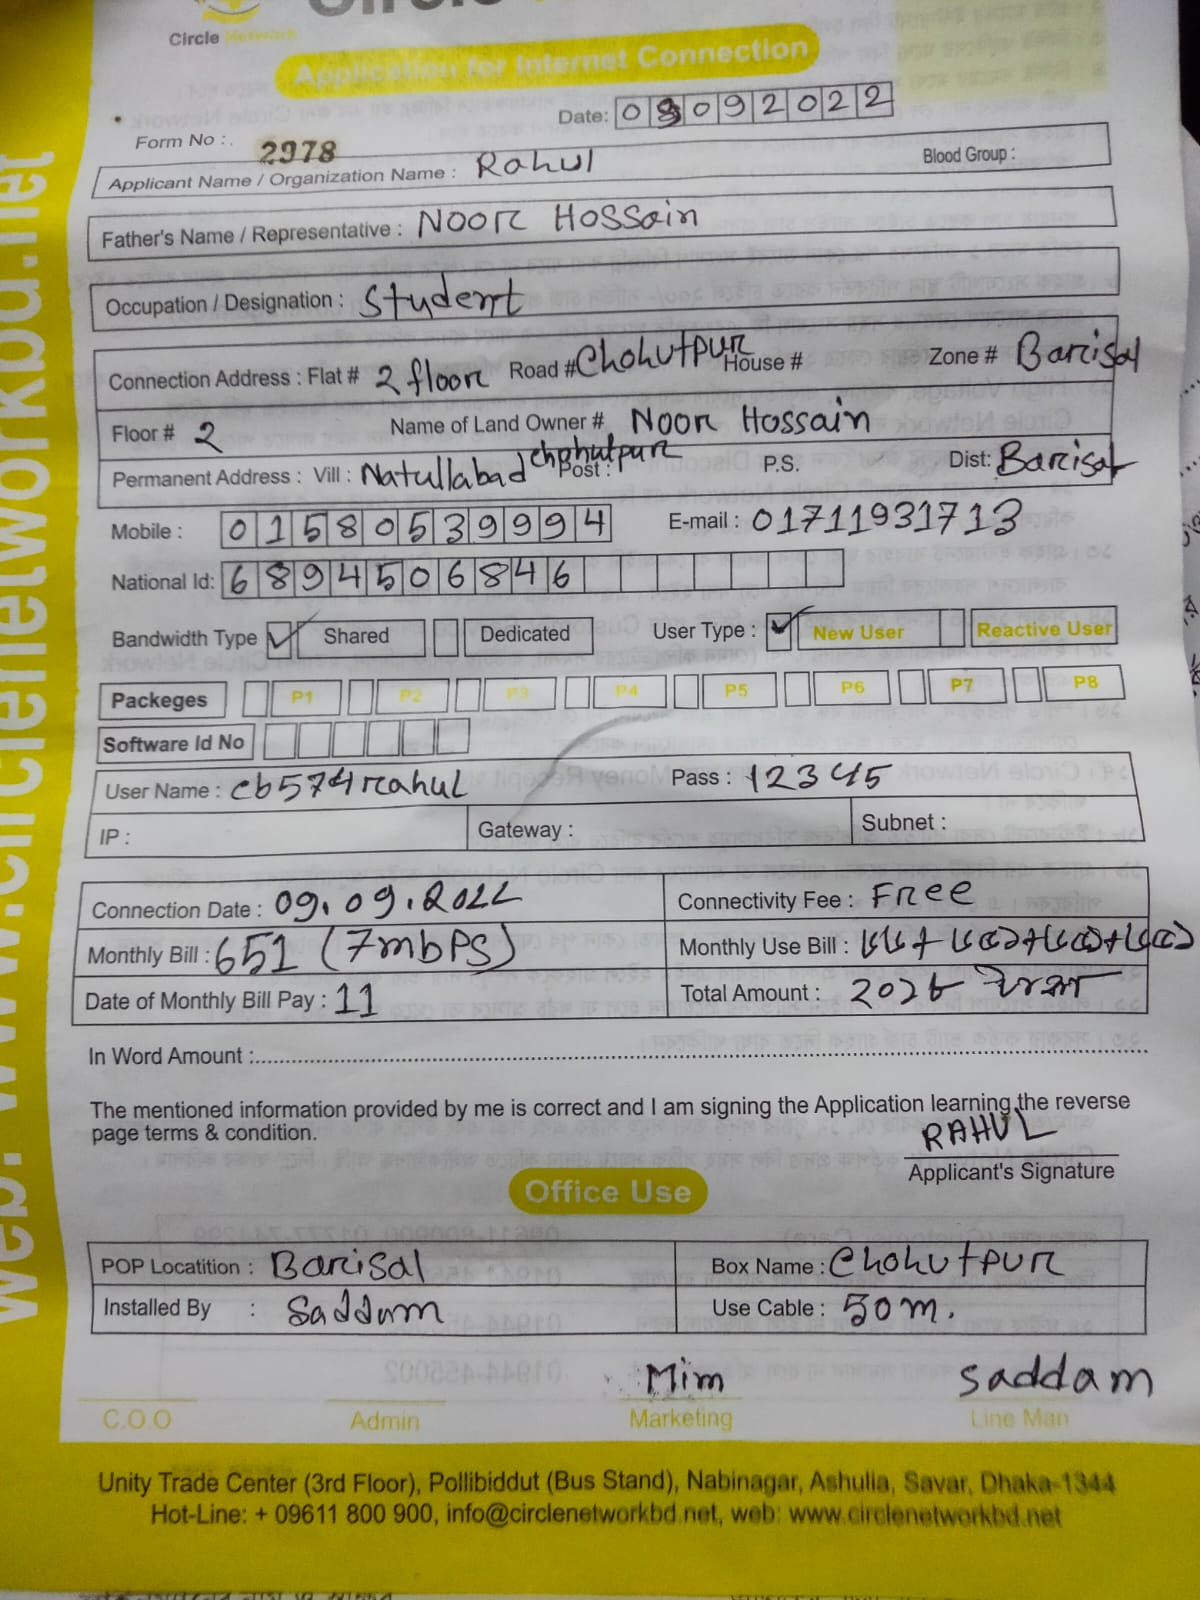 Circle Network
Application for Internet Connection
Date: 08092022
Form No : 2978
Applicant Name / Organization Name : Rahul Blood Group :
Father's Name / Representative : Noor Hossain
Occupation / Designation : Student
Connection Address : Flat # 2 floor Road # Chohutpur House # Zone # Barisal
Floor # 2 Name of Land Owner # Noor Hossain
Permanent Address : Vill : Natullabad chohutpur Post : P.S. Dist: Barisal
Mobile : 01580539994 E-mail : 01711931713
National Id: 6894506846
Bandwidth Type Shared Dedicated User Type : New User Reactive User
Packeges P1 P2 P3 P4 P5 P6 P7 P8
Software Id No
User Name : cb574rahul Pass : 12345
IP : Gateway : Subnet :
Connection Date : 09.09.2022 Connectivity Fee : Free
Monthly Bill : 651 (7mbps) Monthly Use Bill :
Date of Monthly Bill Pay : 11 Total Amount :
In Word Amount :
The mentioned information provided by me is correct and I am signing the Application learning the reverse
page terms & condition.
RAHUL
Applicant's Signature
Office Use
POP Locatition : Barisal Box Name : Chohutpur
Installed By : Saddam Use Cable : 50m.
Mim saddam
C.O.O Admin Marketing Line Man
Unity Trade Center (3rd Floor), Pollibiddut (Bus Stand), Nabinagar, Ashulia, Savar, Dhaka-1344
Hot-Line: + 09611 800 900, info@circlenetworkbd.net, web: www.circlenetworkbd.net
web: www.circlenetworkbd.net